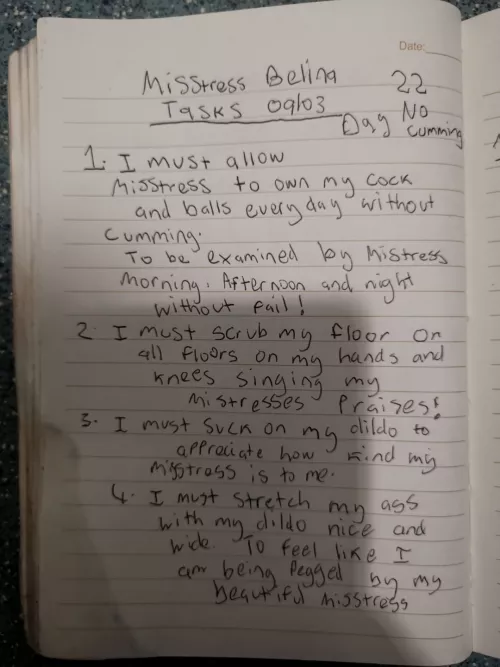 Date:
Misstress Belina 22
Tasks 09/03 Day No
cumming
1. I must allow
Misstress to own my cock
and balls everyday without
cumming.
To be examined by Mistress
Morning. Afternoon and night
without fail!
2. I must scrub my floor on
all floors on my hands and
knees singing my
Mistresses Praises!
3. I must suck on my dildo to
appreciate how kind my
Misstress is to me.
4. I must stretch my ass
with my dildo nice and
wide. To feel like I
am being Pegged by my
beautiful Misstress